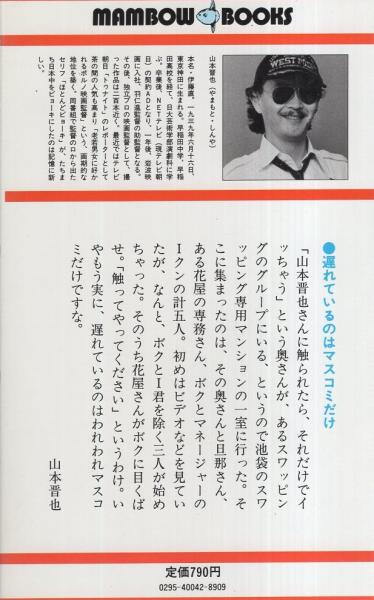 MAMBOW BOOKS
山本晋也（やまもと・しんや）
本名・伊藤直。一九三九年六月十六日、
東京神田に生まれる。早稲田中学、早稲
田高校を経て、日大芸術学部演劇科に学
ぶ。卒業後、NETテレビ（現テレビ朝
日）の契約ADとなり、一年後、岩波映
画に入社。羽仁進監督の助監督となる。
その後、独立プロの映画監督として、撮
った作品は二百本近く。最近ではテレビ
朝日「トゥナイト」のレポーターとして
茶の間の人気も高まり「老若男女に好か
れるポルノ映画監督」という、画期的な
地位を築く。同番組で監督の口から出た
セリフ「ほとんどビョーキ」が、たちま
ち日本中をビョーキにしたのは記憶に新
しい。
WEST
●遅れているのはマスコミだけ
「山本晋也さんに触られたら、それだけでイ
ッちゃう」という奥さんが、あるスワッピン
グのグループにいる、というので池袋のスワ
ッピング専用マンションの一室に行った。そ
こに集まったのは、その奥さんと旦那さん、
ある花屋の専務さん、ボクとマネージャーの
Iクンの計五人。初めはビデオなどを見てい
たが、なんと、ボクとI君を除く三人が始め
ちゃった。そのうち花屋さんがボクに目くば
せ。「触ってやってください」というわけ。い
やもう実に、遅れているのはわれわれマスコ
ミだけですな。
山本晋也
定価790円
0295-40042-8909